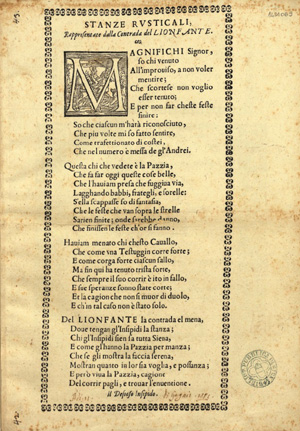 STANZE RVSTICALI,
Rappresentate dalla Contrada del LIONFANTE.
MAGNIFICHI Signor,
so chi venuto
All'improuiso, a non voler
mentire;
Che scortese non voglio
esser tenuto;
E per non far cheste feste
finire:
So che ciascun m'harà riconosciuto,
Che piu volte mi so fatto sentire,
Come trafettionato di costei,
Che nel numero è messa de gl'Andrei.
Questa chi che vedete è la Pazzia,
Che fa far oggi queste cose belle,
Che l'hauiam presa che fuggiua via,
Lagghando babbi, frategli, e sorelle:
Sella scappasse so di fantasia,
Che le feste che van sopra le stelle
Sarien finite; onde sarebbe danno,
Che finissen le feste ch'or si fanno.
Hauiam menato chi chesto Cauallo,
Che come vna Testuggin corre forte;
E come corga forte ciascun fallo,
Ma fin qui ha tenuto trista sorte,
Che sempre il suo correr è ito in fallo,
E sue speranze sonno state corte;
Et la cagion che non si muor di duolo,
E ch'in tal caso non è stato solo.
Del LIONFANTE la contrada el mena,
Doue tengan gl'Insipidi la stanza;
Chi gl'Insipidi sien sa tutta Siena,
E come gl'hanno la Pazzia per manza;
Che se gli mostra la faccia serena,
Mostran quanto in lor sia voglia, e possanza;
E però viua la Pazzia, cagione
Del corrir pugli, e trouar l'enuentione.
il Desioso Insipido.